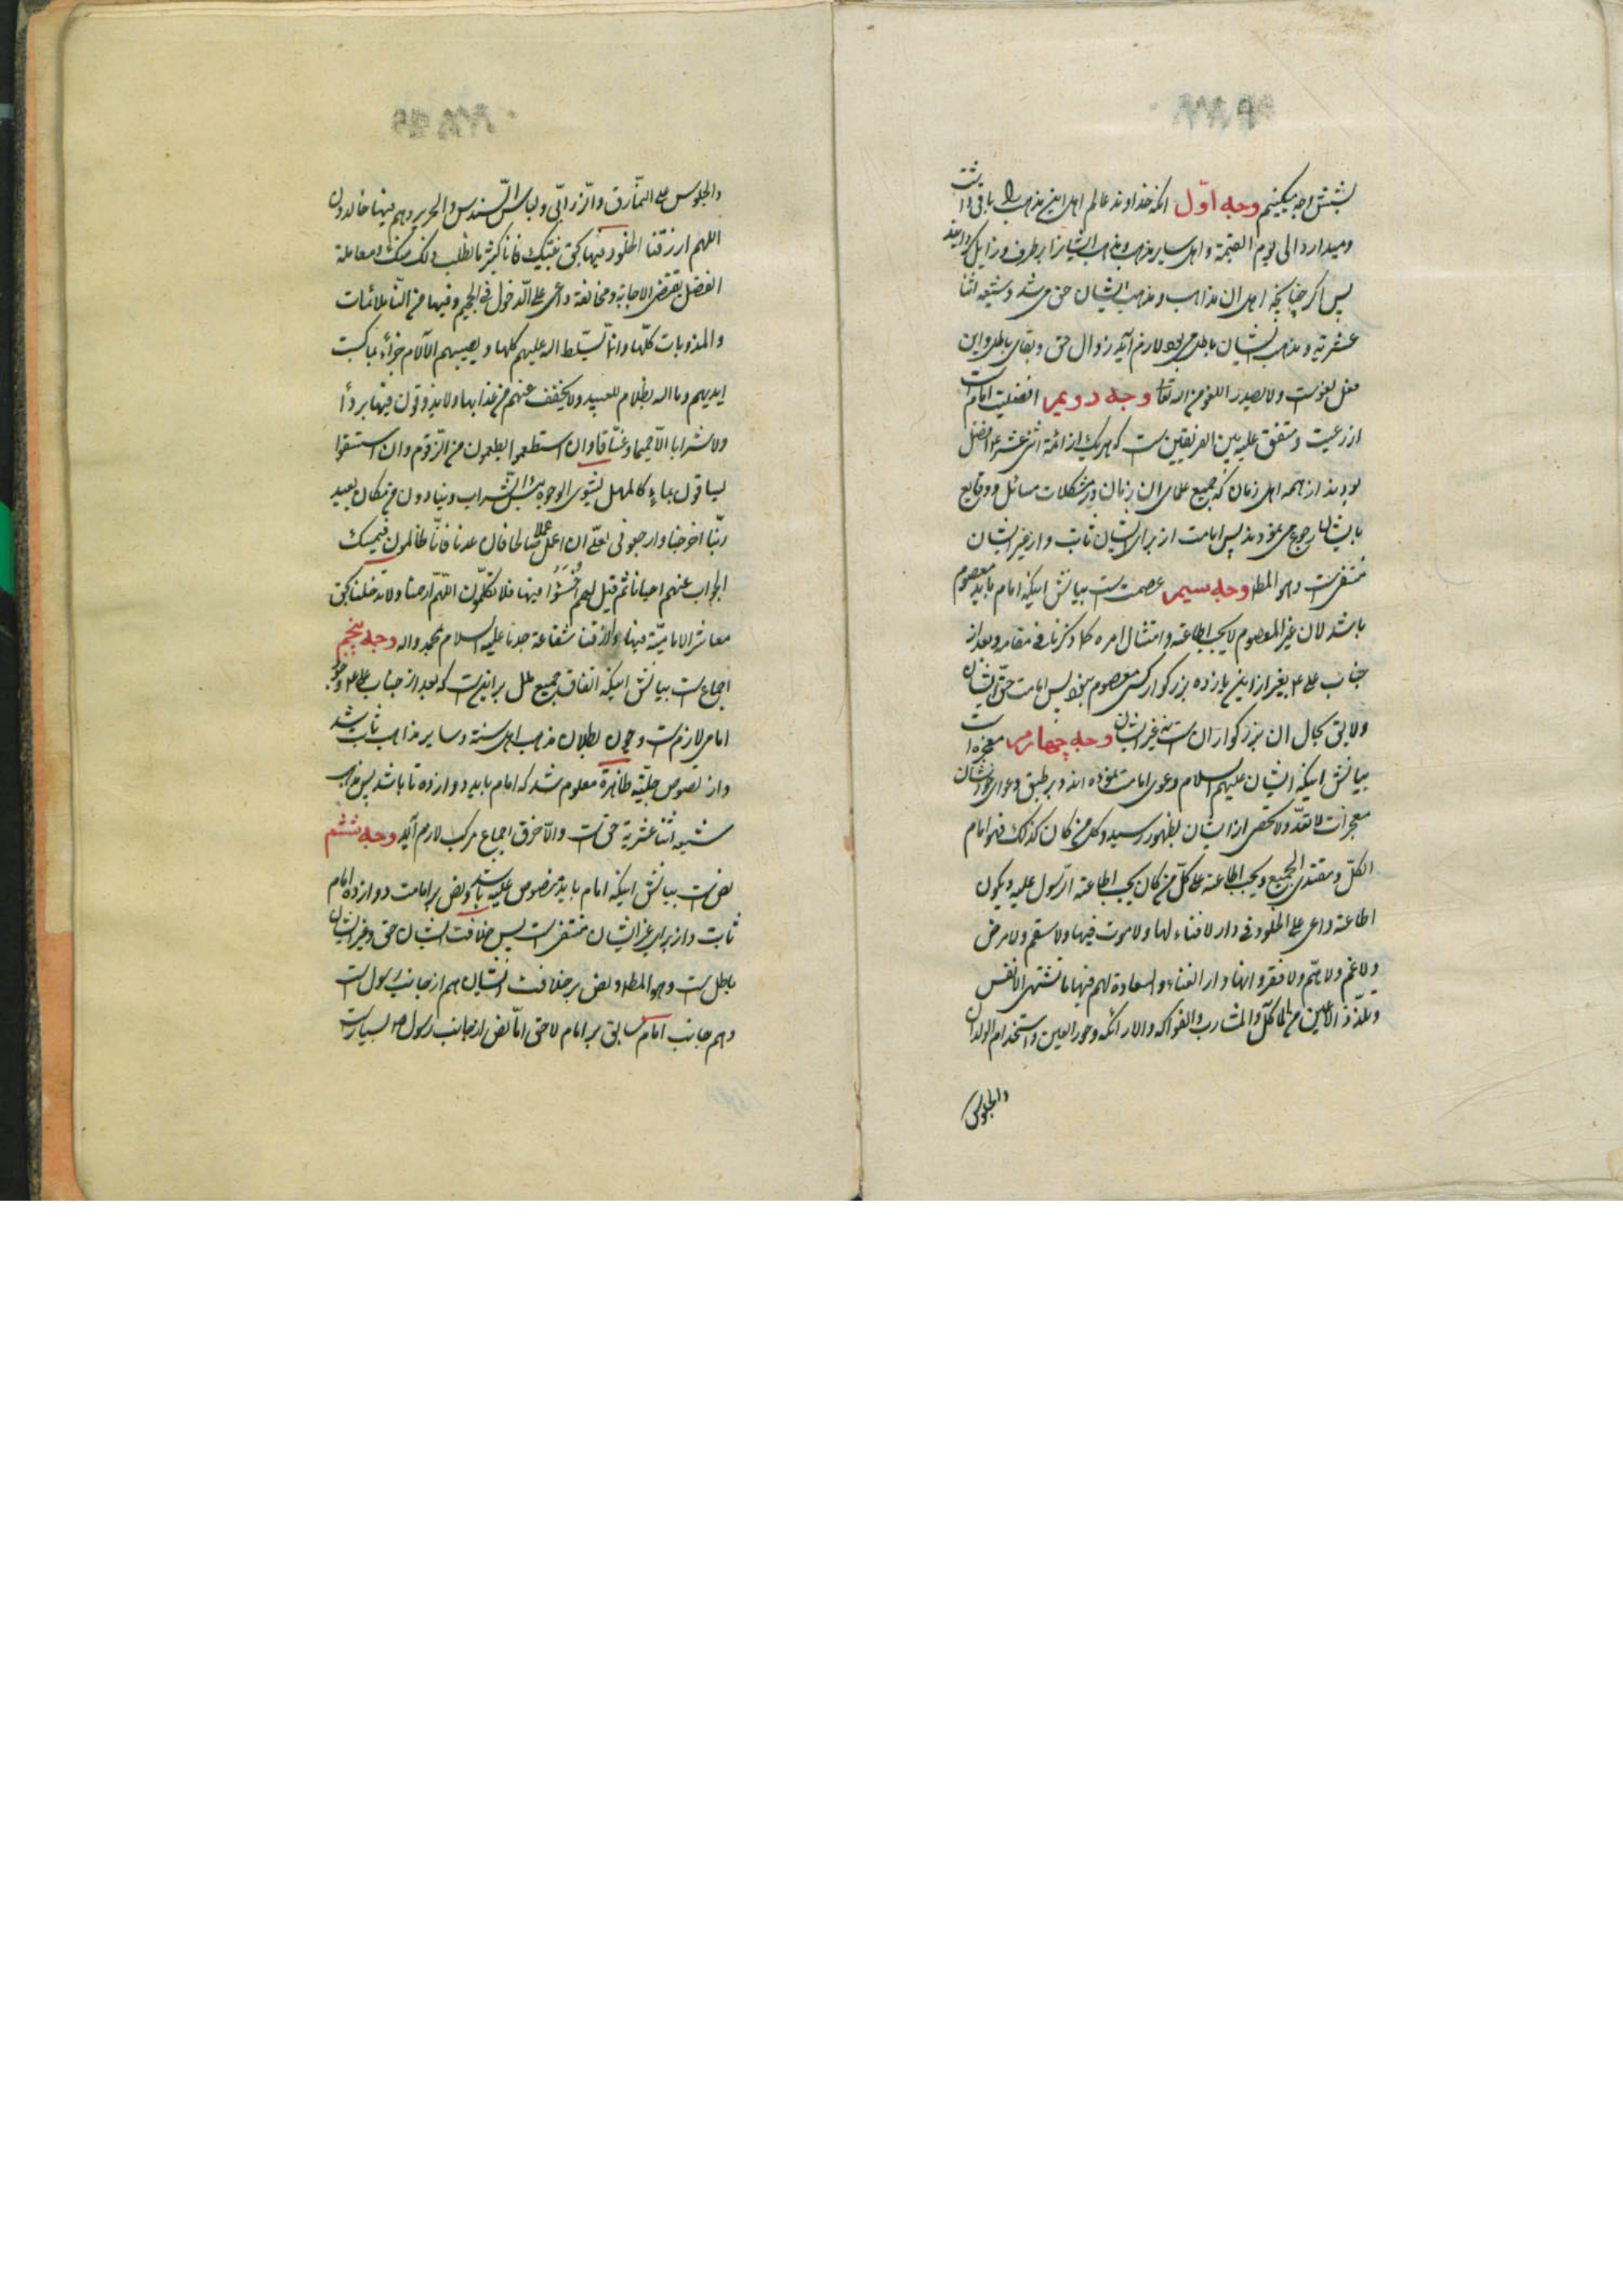 بشش وجه میکنیم وجه اوّل انکه خداوند عالم اهل این مذهب را باقی داشت
ومیدارد الی یوم القیمة واهل سایر مذهب ومذهب ایشانرا برطرف وزایل گردانید
پس اگر چنانچه اهل ان مذاهب ومذهب ایشان حق می شد وشیعه اثنا
عشریه ومذهب ایشان باطل می بود لازم آید زوال حق وبقای باطل واین
فعل لغوست ولا یصدر اللغو من الله تعا وجه دویم افضلیت امام است
از رعیت ومتفق علیه بین الفریقین ست که هریک از ائمة اثنی عشر ع افضل
بودند از همه اهل زمان که جمیع علمای ان زمان در مشکلات مسائل ووقایع
بایشان رجوع می نمودند پس امامت از برای ایشان ثابت واز غیر ایشان
منتفی ست وهو المط وجه سیم عصمت ست بیانش اینکه امام باید معصوم
باشد لان غیر المعصوم لا یجب اطاعته وامتثال امره کما ذکرنا فی مقامه وبعد از
جناب علی ع بغیر از این یازده بزرگوار کسی معصوم نبود پس امامت حق ایشان
ولایق بحال ان بزرگواران ست نه غیر ایشان وجه چهارم معجزه است
بیانش اینکه ایشان علیهم السلام دعوی امامت نموده اند وبر طبق دعوای خودشان
معجزات لا تعدّ ولا تحصی از ایشان بظهور رسید وکل من کان کذلک فهو امام
الکلّ ومقتدی الجمیع ویجب اطاعته علی کلّ من کان یجب اطاعة الرّسول علیه ویکون
اطاعته داعی علی الخلود فی دار لا فناء لها ولا موت فیها ولا سقم ولا مرض
ولا غم ولا همّ ولا فقر وانها دار الغناء والسعادة لهم فیها ما تشتهی الانفس
وتلذّذ الاعین من المآکل والمشارب والفواکه والارائکه وحور العین واستخدام الولدان
والجلوس
والجلوس علی النمّارق والزّرابیّ ولباس السّندس والحریر وهم فیها خالدون
اللهم ارزقنا الخلود فیها بحق نبیّک فانا کثیر ما نطلب ذلک منک ومعاملة
الفضل یقتضی الاجابة ومخالفة داعی علی الدّخول فی الجحیم وفیها من النّا ملائمات
والمذوبات کلّها وانّ لسّلط الله علیهم کلها ویصیبهم الآلام جزاء بما کسبت
ایدیهم وما الله بظلام للعبید ولا یخفف عنهم من عذابها ولا یذوقون فیها بردا
ولا شرابا الّا حمیما وغسّاقا وان استطعموا یطعمون من الزّقّوم وان استسقوا
یساقون بماء کالمهل یشوی الوجوه بئس الشّراب وینادون من مکان بعید
ربّنا اخرجنا وارجعونی لعلّی ان اعمل عملا صالحا فان عدنا فانّا ظالمون فیمسک
الجواب عنهم احیانا ثم قیل لهم اخسئوا فیها فلا تکلّمون اللّهمّ ارحمنا ولا تدخلنا بحق
معاشر الامامیّة فیها وارزقنا شفاعة جدنا علیه السلام بمحمد واله وجه پنجم
اجماع ست بیانش اینکه اتفاق جمیع ملل بر اینست که بعد از جناب علی ع وجود
امامی لازم ست وچون بطلان مذهب اهل سنة وسایر مذاهب ثابت شد
واز نصوص جلیّه ظاهرة معلوم شد که امام باید دوازده تا باشد پس مذهب
شیعه اثنا عشریة حق ست والّا خرق اجماع مرکب لازم آید وجه ششم
نص ست بیانش اینکه امام باید منصوص علیه باشد ونص بر امامت دوازده امام
ثابت واز برای غیر ایشان منتفی ست پس خلافت ایشان حق وغیر ایشان
باطل ست وهو المط ونص بر خلافت ایشان هم از جانب رسول ست
وهم جانب امام سابق بر امام لاحق امّا نص از جانب رسول ص بسیارست